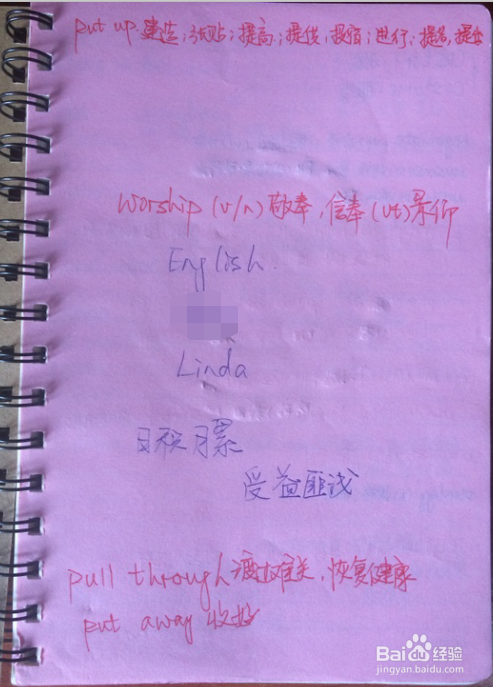 put up 建造；张贴；提高；提供，投宿；进行；提名，提出
Worship (v/n) 敬奉，信奉 (vt) 景仰
English.
Linda
日积月累
受益匪浅
pull through 渡过难关，恢复健康
put away 收拾
Baidu 经验
jingyan.baidu.com